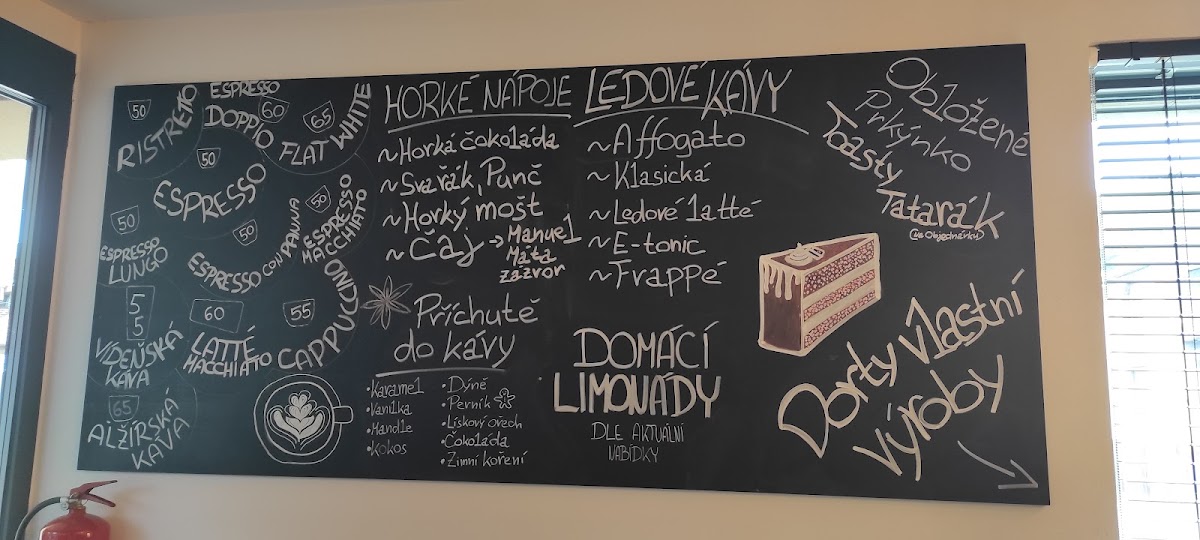 50
RISTRETTO
ESPRESSO
DOPPIO
60
65
FLAT WHITE
50
ESPRESSO
50
ESPRESSO
LUNGO
50
ESPRESSO CON PANNA
50
ESPRESSO
MACCHIATO
5
5
VÍDEŇSKÁ
KÁVA
60
LATTÉ
MACCHIATO
55
CAPPUCINO
65
ALŽÍRSKÁ
KÁVA
HORKÉ NÁPOJE
~Horká čokoláda
~Svařák, Punč
~Horký mošt
~Čaj → Manuel
Máta
zázvor
Příchutě
do kávy
•Karamel
•Vanilka
•Mandle
•Kokos
•Dýně
•Perník
•Lískový ořech
•Čokoláda
•Zimní koření
LEDOVÉ KÁVY
~Affogato
~Klasická
~Ledové latté
~E-tonic
~Frappé
DOMÁCÍ
LIMONÁDY
DLE AKTUÁLNÍ
NABÍDKY
Obložené
Prkýnko
Toasty
Tatarák
Dorty vlastní
výroby